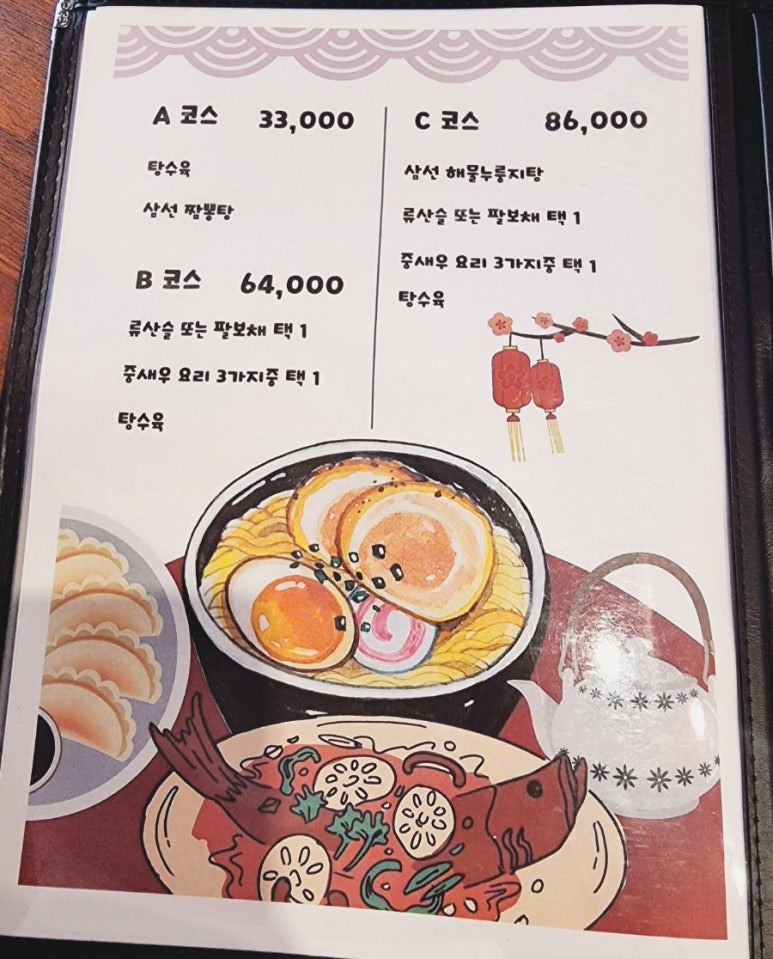 A 코스 33,000
탕수육
삼선 짬뽕탕
B 코스 64,000
류산슬 또는 팔보채 택 1
중새우 요리 3가지중 택 1
탕수육
C 코스 86,000
삼선 해물누룽지탕
류산슬 또는 팔보채 택 1
중새우 요리 3가지중 택 1
탕수육